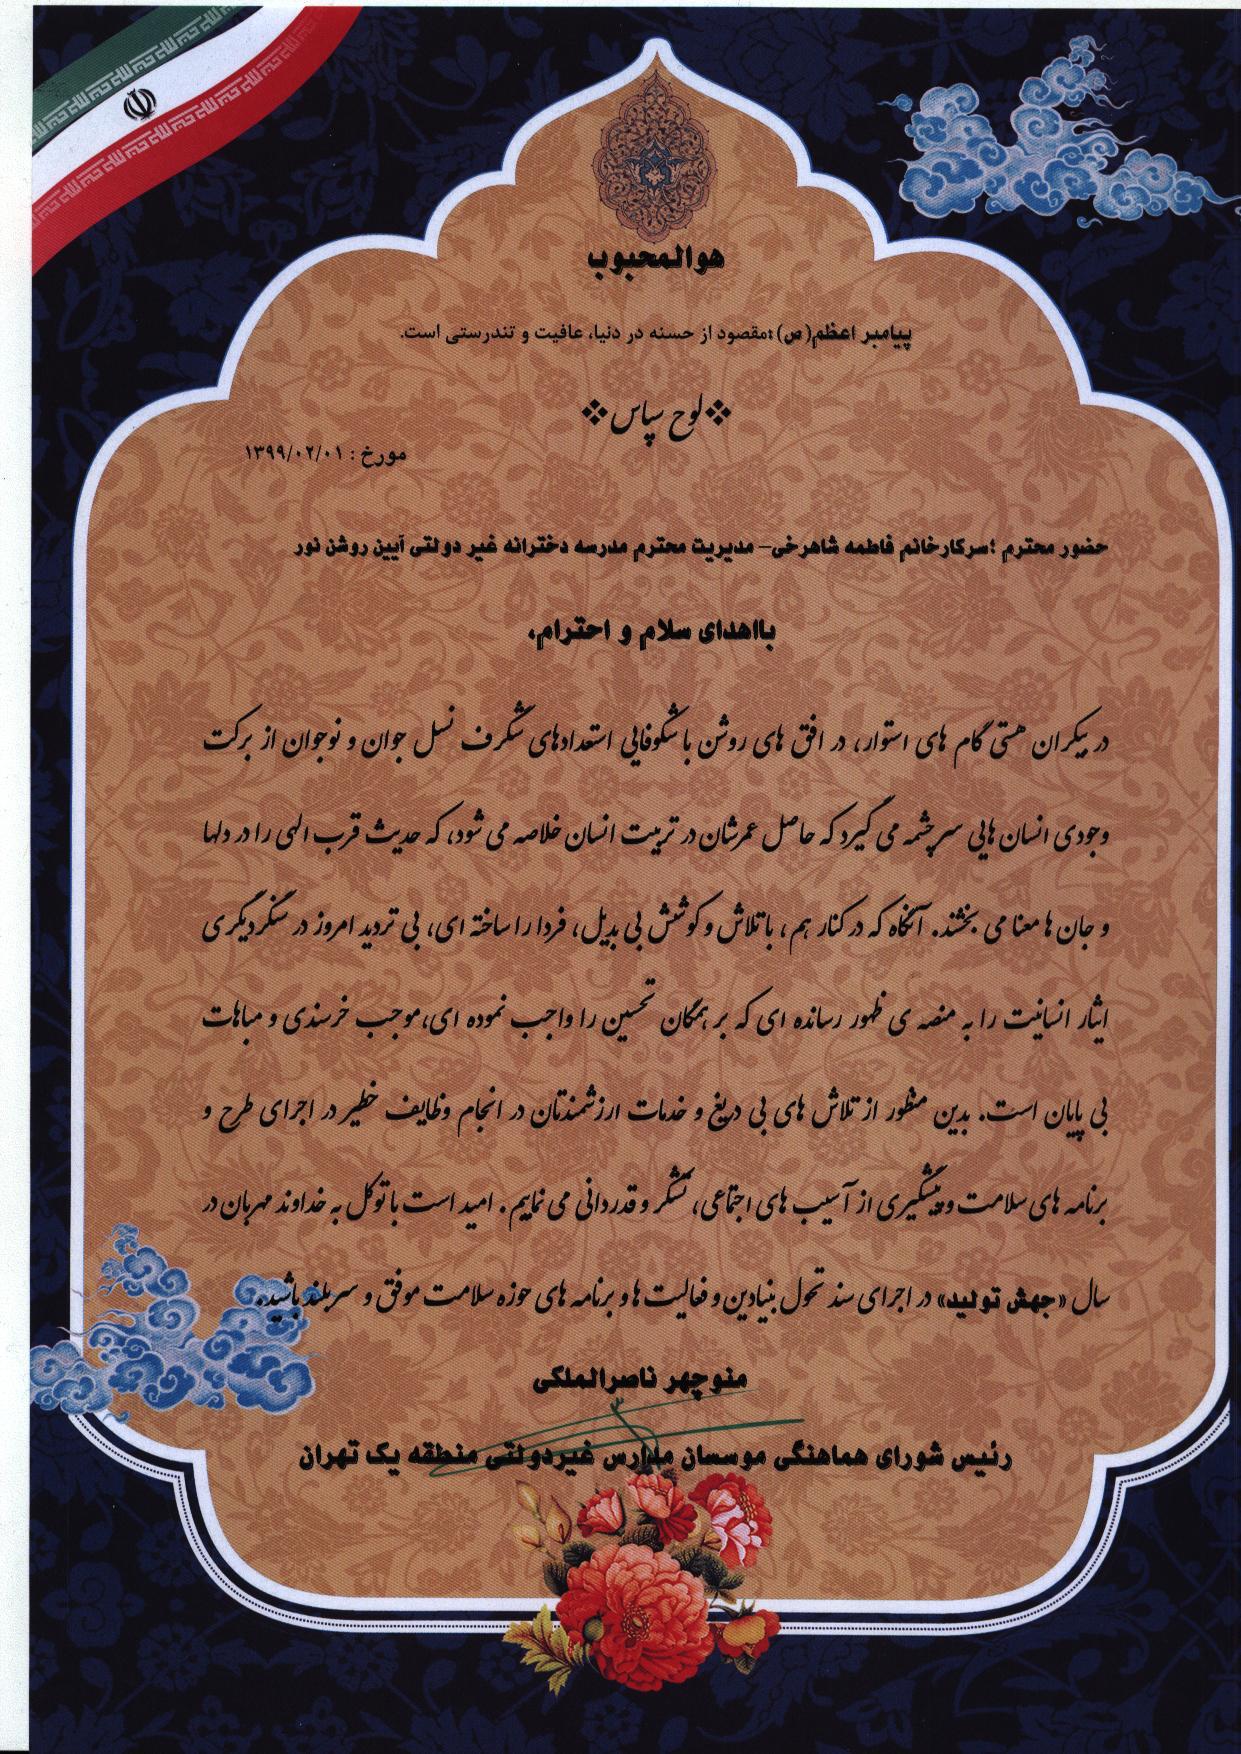 هوالمحبوب
پیامبر اعظم(ص):مقصود از حسنه در دنیا، عافیت و تندرستی است.
لوح سپاس
مورخ : ۱۳۹۹/۰۲/۰۱
حضور محترم ؛سرکارخانم فاطمه شاهرخی- مدیریت محترم مدرسه دخترانه غیر دولتی آیین روشن نور
بااهدای سلام و احترام،
در بیکران هستی گام های استوار، در افق های روشن با شکوفایی استعدادهای شگرف نسل جوان و نوجوان از برکت
وجودی انسان هایی سرچشمه می گیرد که حاصل عمرشان در تربیت انسان خلاصه می شود، که حدیث قرب الهی را در دلها
و جان ها معنا می بخشند. آنگاه که در کنار هم، با تلاش و کوشش بی بدیل، فردا را ساخته ای، بی تردید امروز در سنگر دیگری
ایثار انسانیت را به منصه ی ظهور رسانده ای که بر همگان تحسین را واجب نموده ای،موجب خرسندی و مباهات
بی پایان است. بدین منظور از تلاش های بی دریغ و خدمات ارزشمندتان در انجام وظایف خطیر در اجرای طرح و
برنامه های سلامت و پیشگیری از آسیب های اجتماعی، تشکر و قدردانی می نمایم. امید است با توکل به خداوند مهربان در
سال «جهش تولید» در اجرای سند تحول بنیادین و فعالیت ها و برنامه های حوزه سلامت موفق و سربلند باشید.
منوچهر ناصرالملکی
رئیس شورای هماهنگی موسسان مدارس غیردولتی منطقه یک تهران